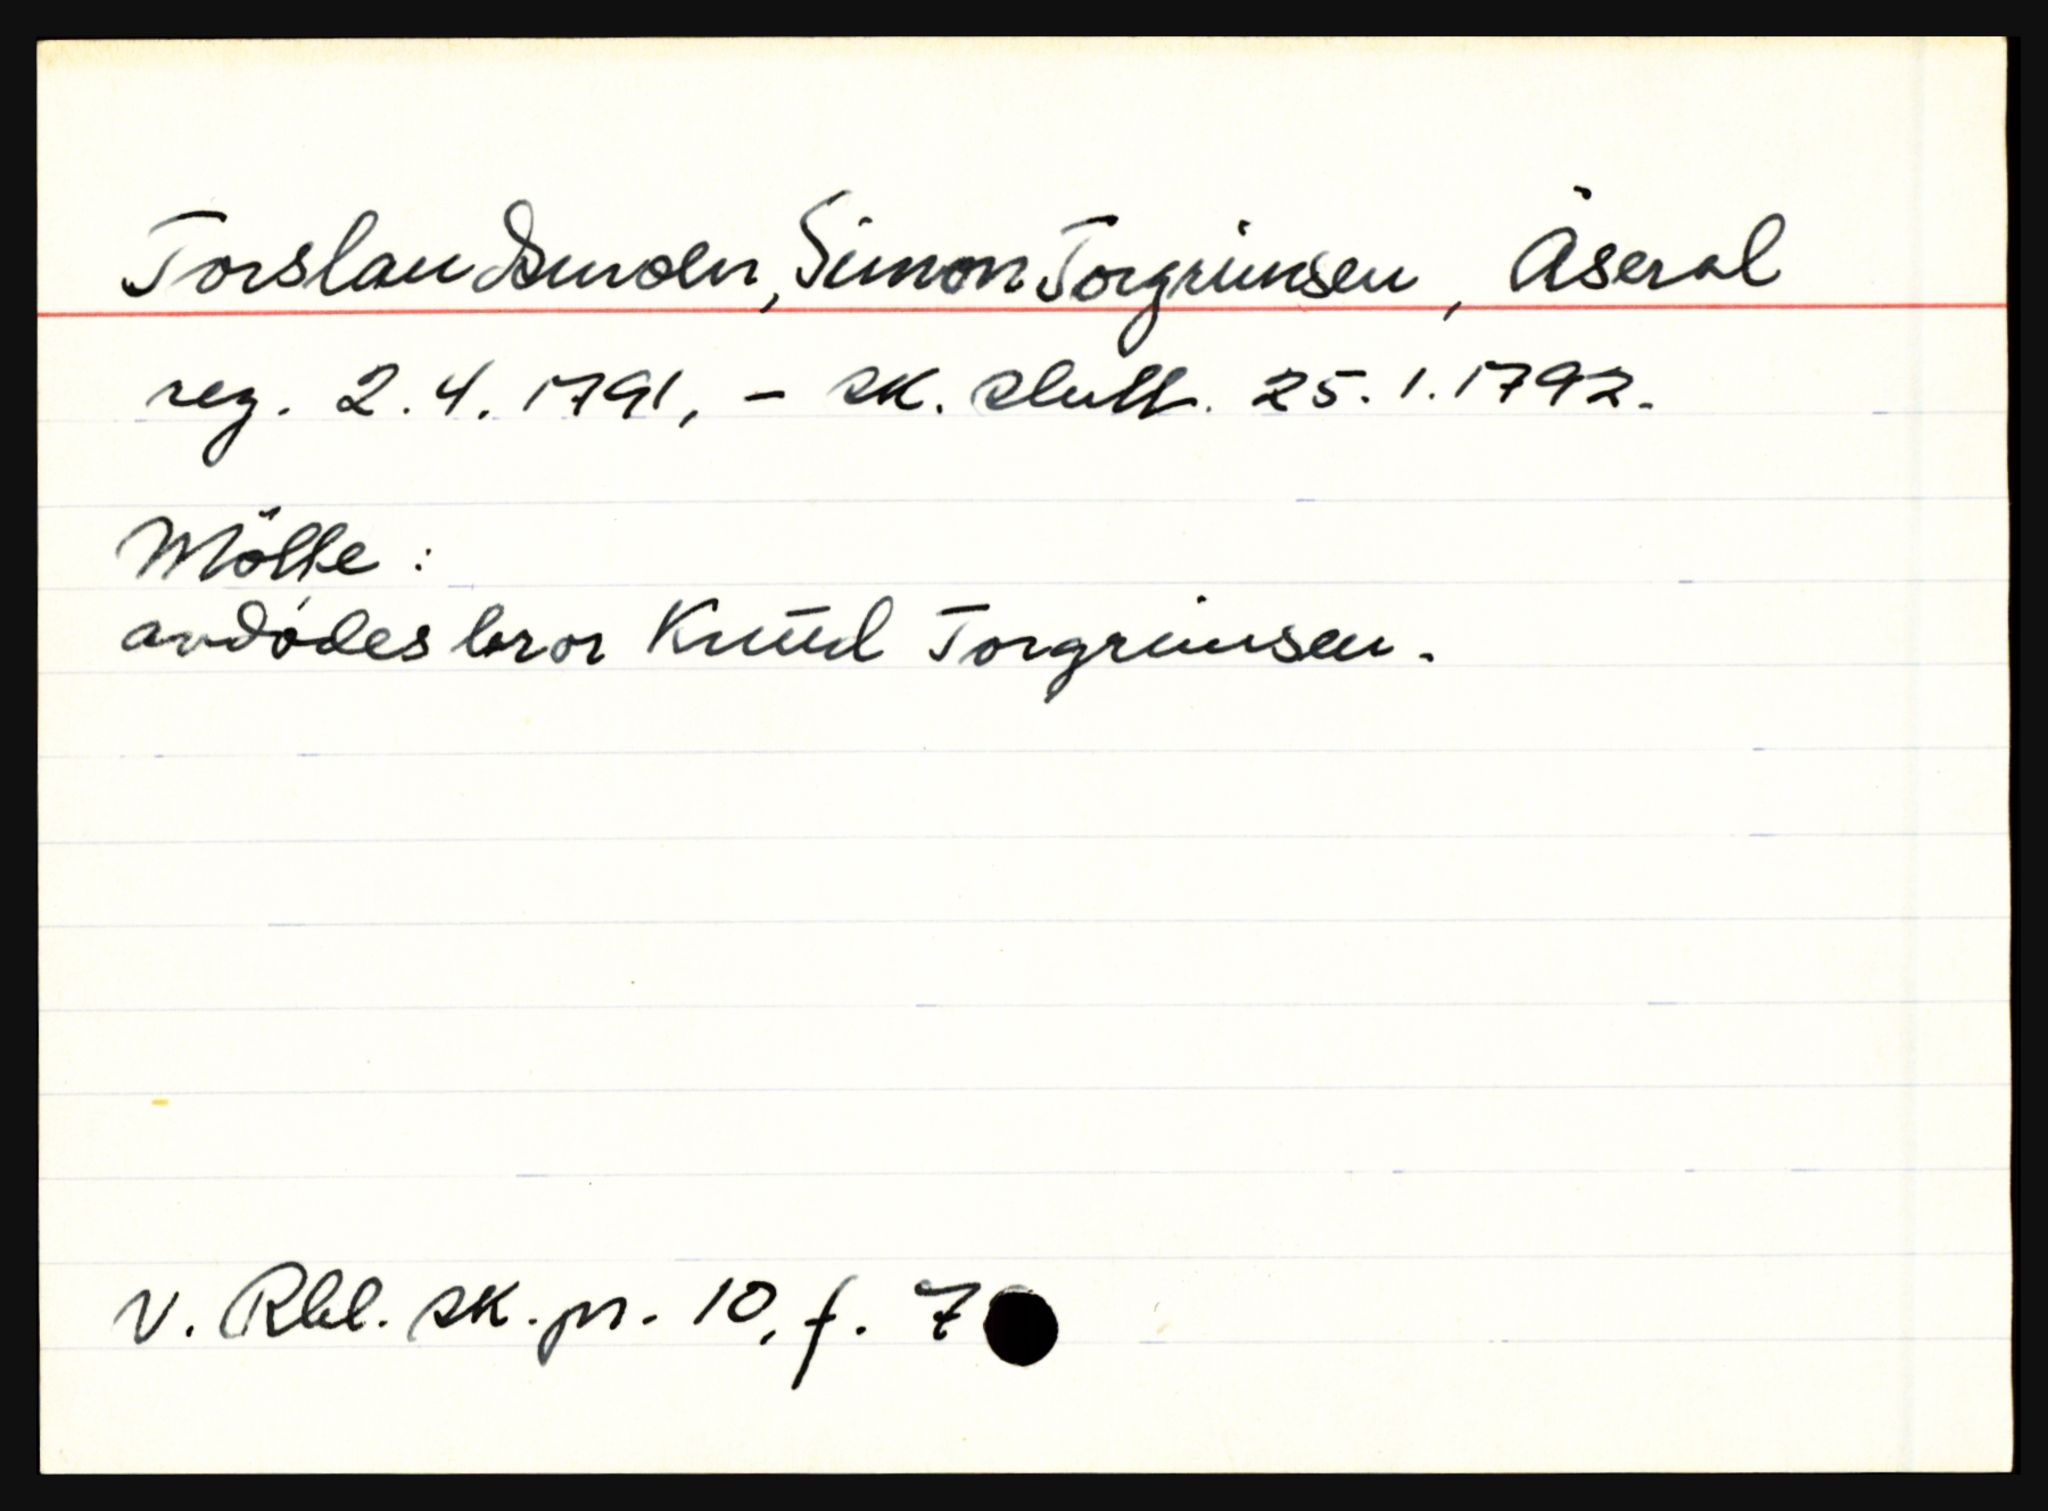 Torsland, Simon Torgrimsen, Åseral
reg. 2.4.1791, - sk. slutt. 25.1.1792.
Mötte:
avdödes bror Knud Torgrimsen.
V. Rbl. sk. pr. 10, f. 7